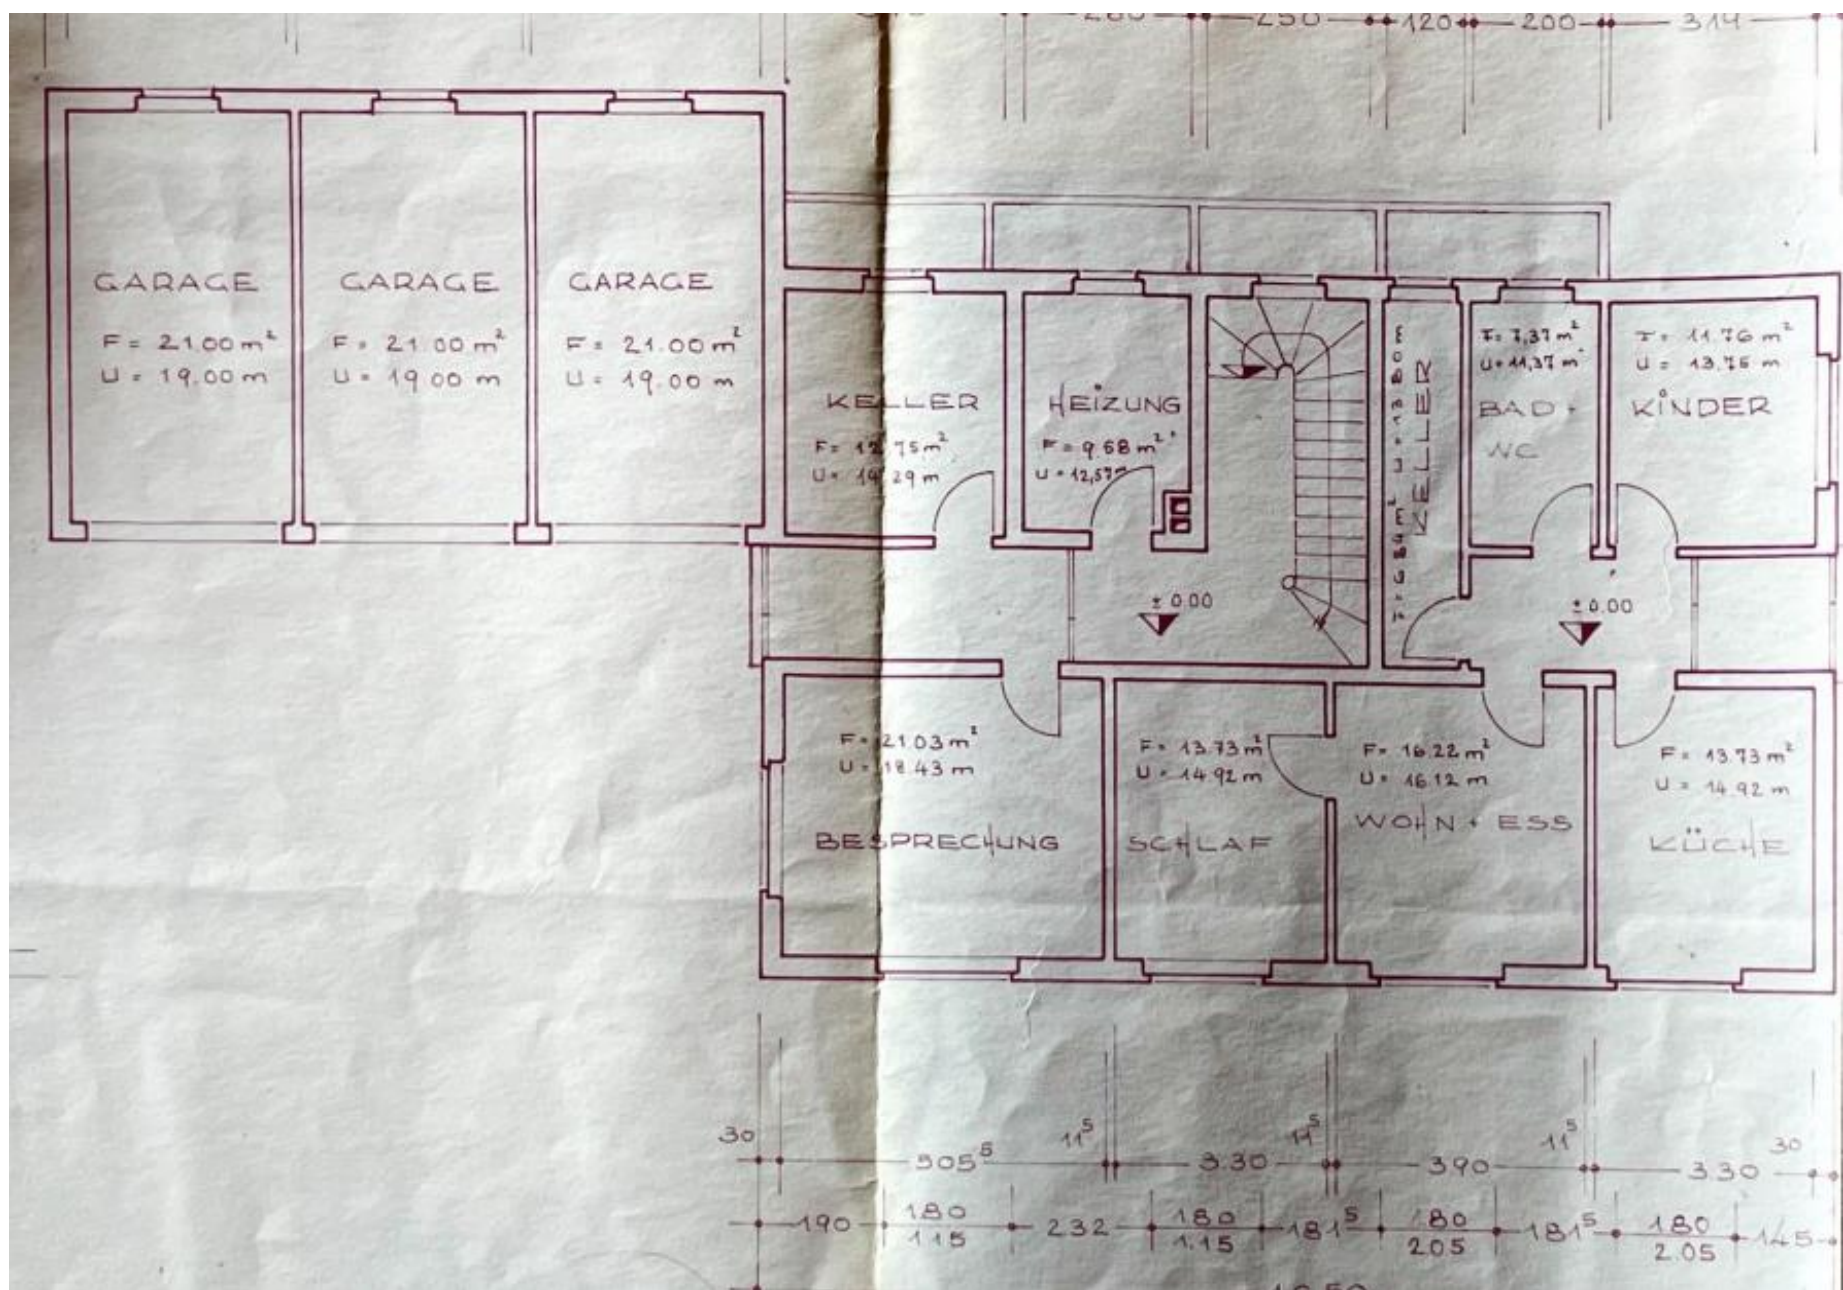 260
250
120
200
314
GARAGE
F = 21.00 m²
U = 19.00 m
GARAGE
F = 21.00 m²
U = 19.00 m
GARAGE
F = 21.00 m²
U = 19.00 m
KELLER
F = 12.75 m²
U = 14.29 m
HEIZUNG
F = 9.68 m²
U = 12,57m
KELLER
F = 7,37 m²
U = 11,37 m
BAD +
WC
F = 11.76 m²
U = 13.75 m
KINDER
± 0.00
± 0.00
F = 21.03 m²
U = 18.43 m
BESPRECHUNG
F = 13.73 m²
U = 14.92 m
SCHLAF
F = 16.22 m²
U = 16.12 m
WOHN + ESS
F = 13.73 m²
U = 14.92 m
KÜCHE
30
505⁵
11⁵
3.30
11⁵
390
11⁵
3.30
30
190
180
115
232
180
1.15
181⁵
180
205
181⁵
180
2.05
145